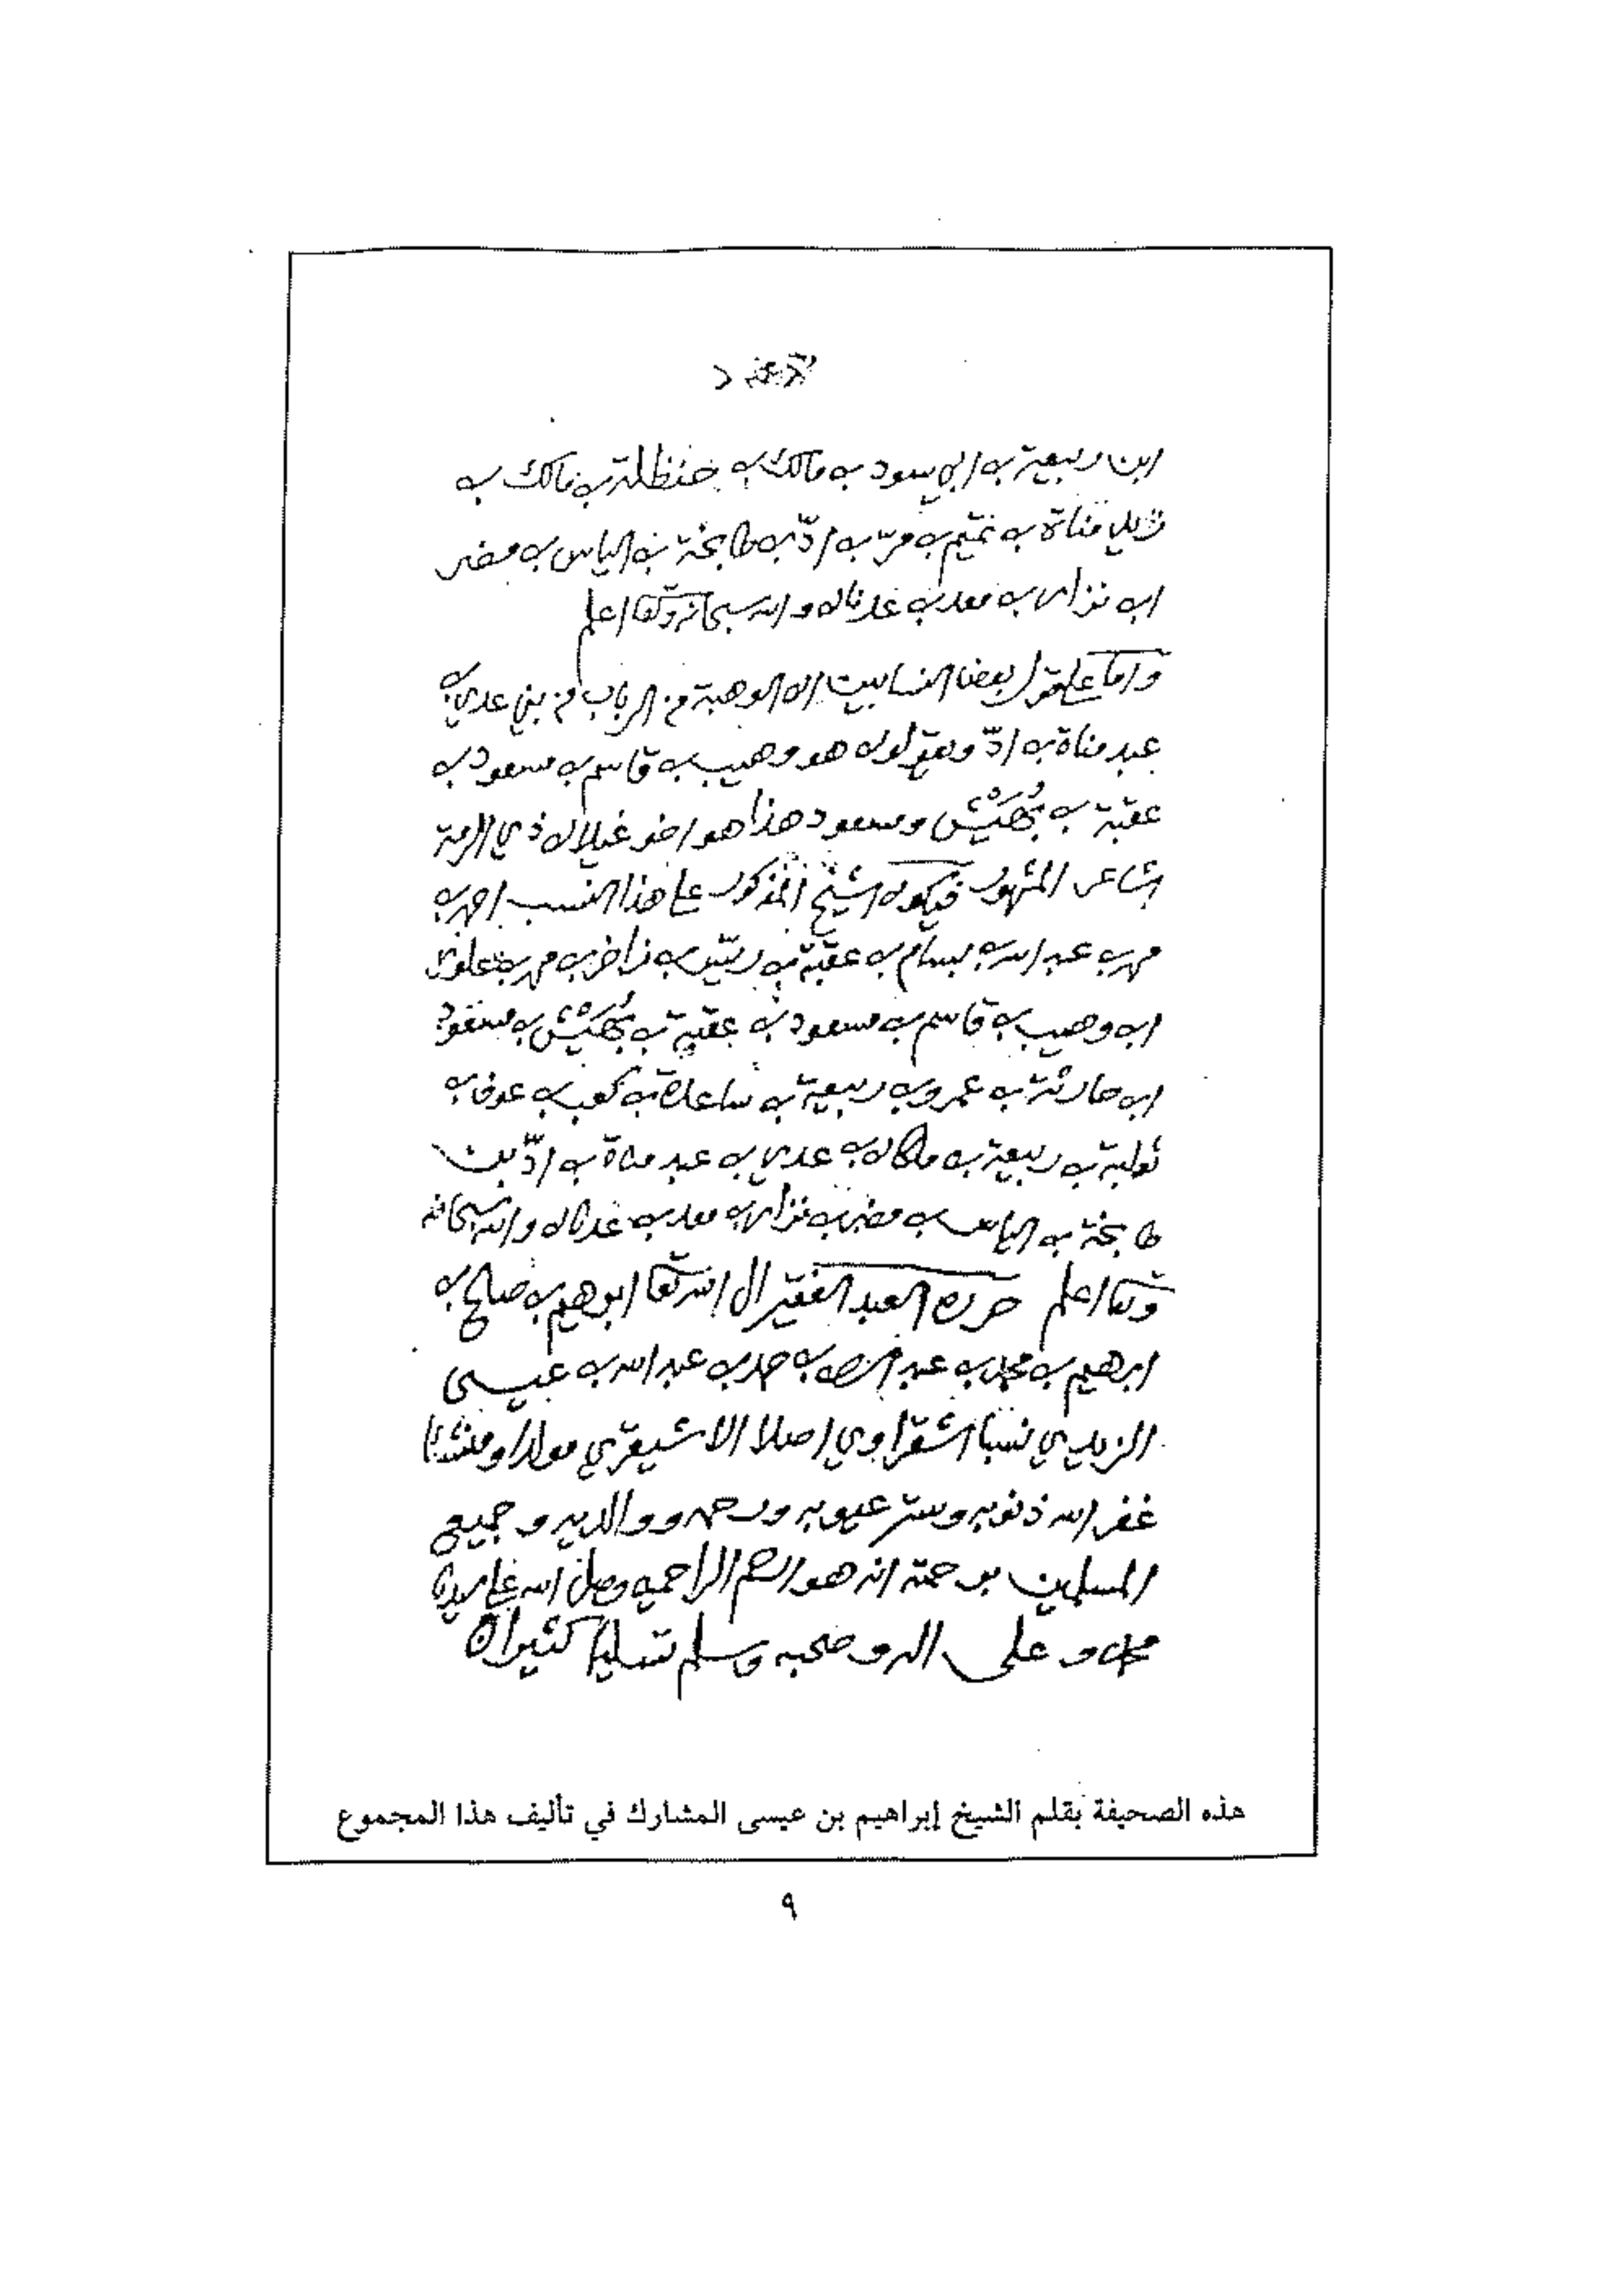 ابن ربيعة بن ابي سود بن مالك بن حنظلة بن مالك بن
زيد مناة بن تميم بن مرّ بن ادّ بن طابخة بن الياس بن مضر
ابن نزار بن معد بن عدنان والله سبحانه وتعا اعلم
واما على قول بعض النسابين ان الوهبة من الرباب من بني عدي بن
عبد مناة بن ادّ ويقولون هو وهيب بن قاسم بن مسعود بن
عقبة بن بُهَيْش ومسعود هذا هو اخو غيلان ذي الرمة
الشاعر المشهور فيكون الشيخ المذكور على هذا النسب احمد بن
محمد بن عبد الله بن بسام بن عقبة بن ريّس بن زاخر بن محمد بن علوي
ابن وهيب بن قاسم بن مسعود بن عقبة بن بُهَيْش بن مسعود
ابن حارثة بن عمرو بن ربيعة بن ساعدة بن كعب بن عوف بن
ثعلبة بن ربيعة بن ملكان بن عدي بن عبد مناة بن ادّ بن
طابخة بن الياس بن مضر بن نزار بن معد بن عدنان والله سبحانه
وتعا اعلم حرره العبد الفقير الى الله تعا ابرهيم بن صالح بن
ابرهيم بن محمد بن عبد الرحمن بن حمد بن عبد الله بن عيسى
الزيدي نسبا الشقراوي اصلا الاشيقري مولدا ومنشئا
غفر الله ذنوبه وستر عيوبه ورحمه ووالديه وجميع
المسلمين برحمته انه هو ارحم الراحمين وصلى الله على سيدنا
محمد وعلى اله وصحبه وسلم تسليما كثيرا
هذه الصحيفة بقلم الشيخ إبراهيم بن عيسى المشارك في تأليف هذا المجموع
٩